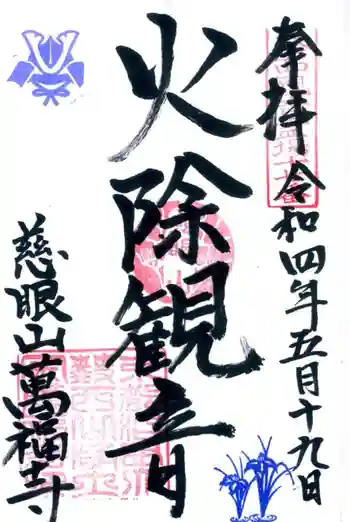 奉拝
令和四年五月十九日
火除観音
慈眼山萬福寺